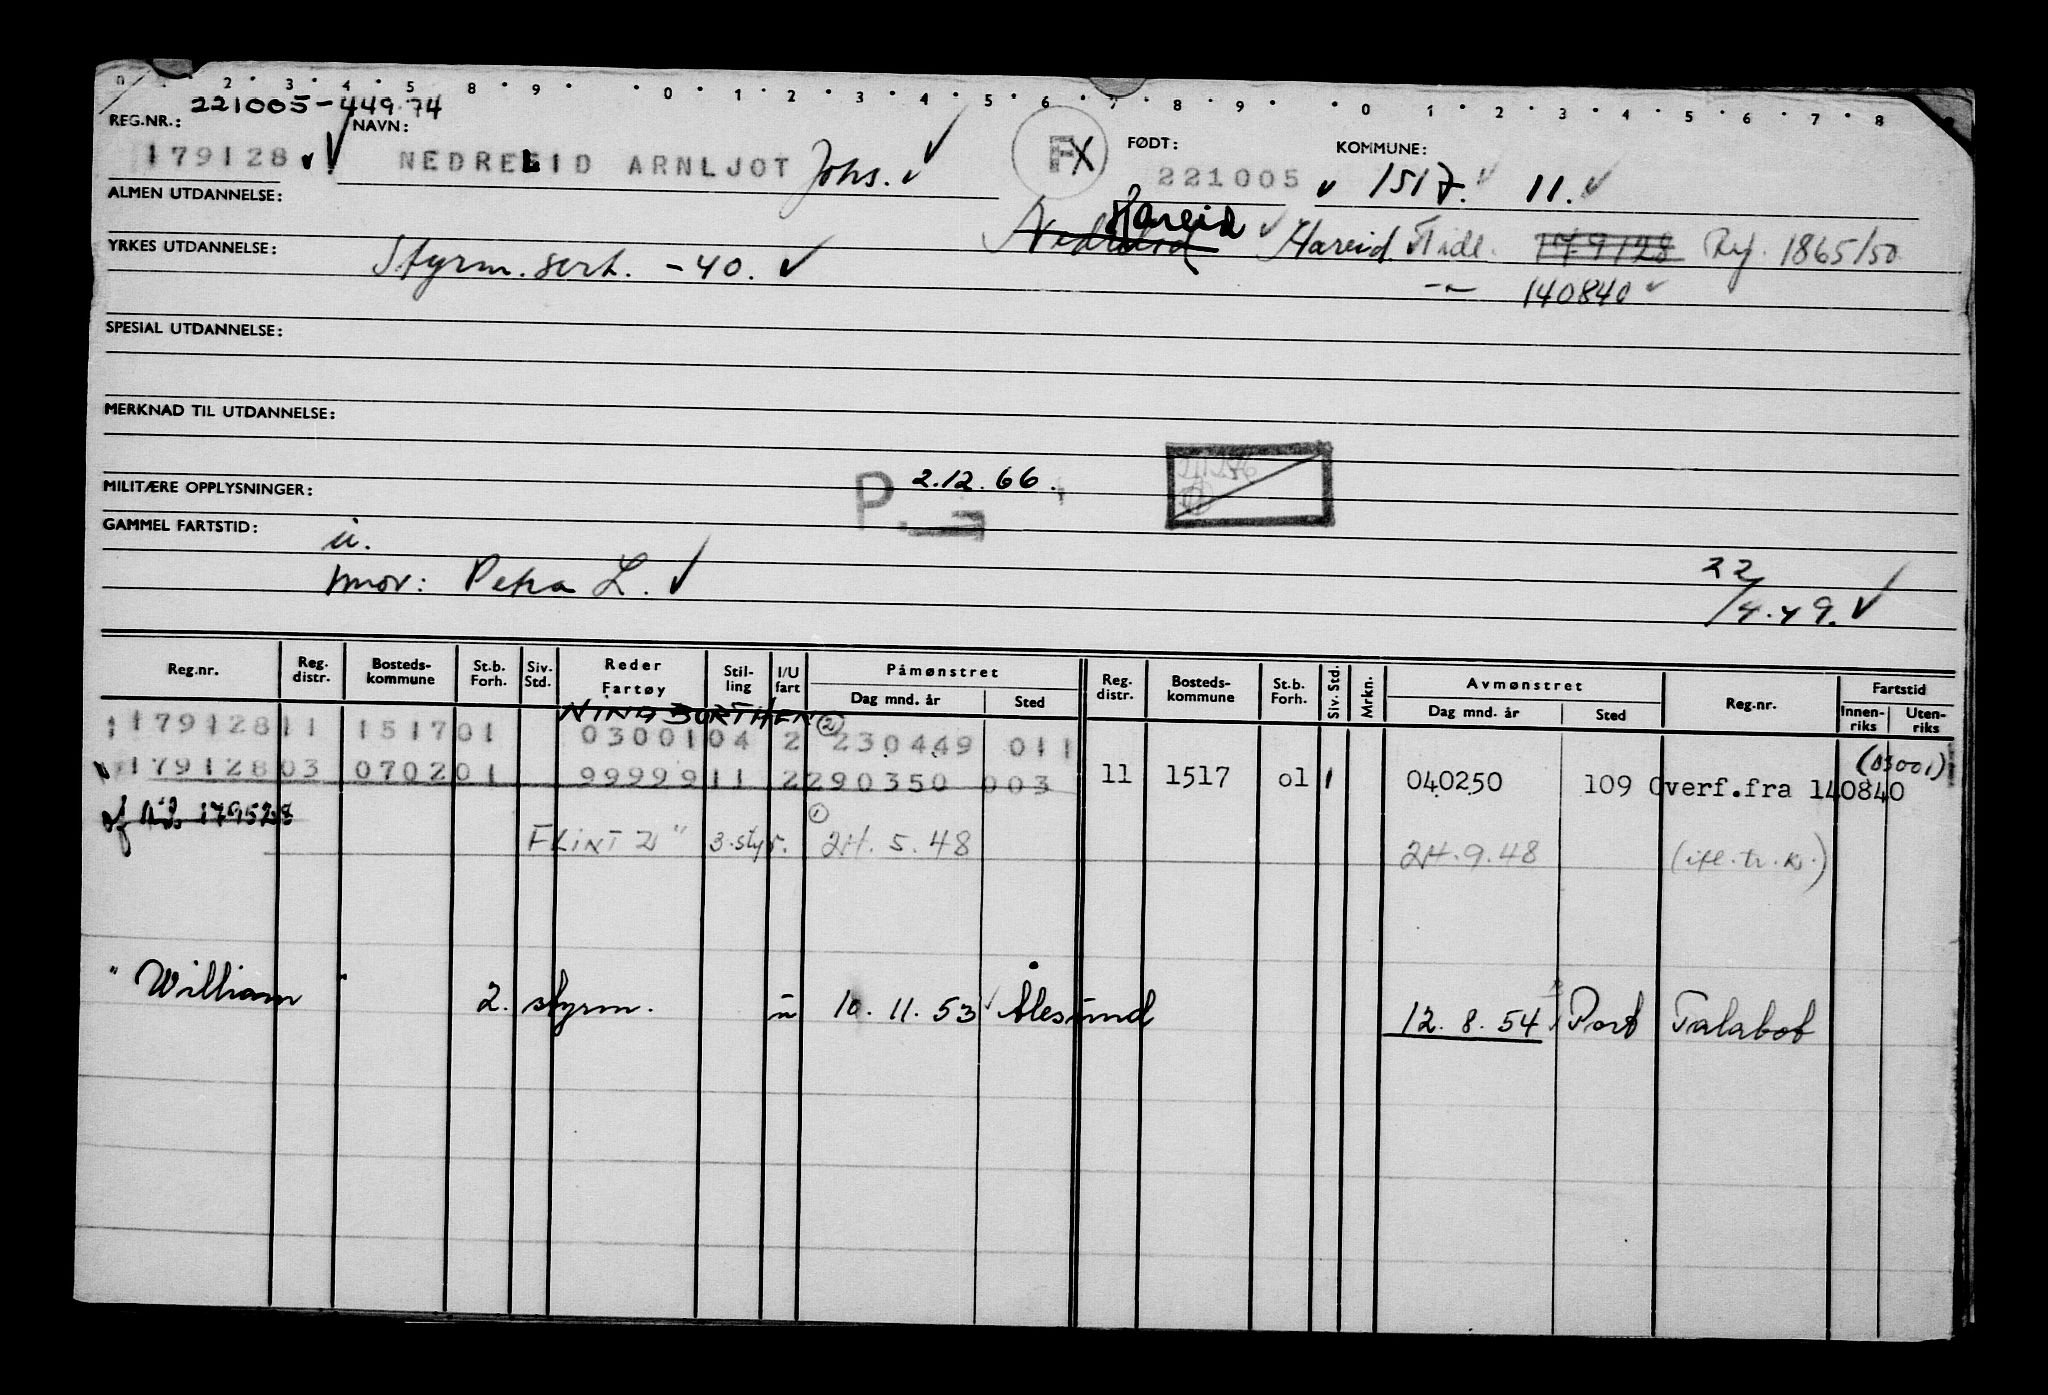 221005-449.74
REG.NR.: NAVN: FØDT: KOMMUNE:
179128 NEDRELID ARNLJOT Johs. FX 221005 1517. 11.
ALMEN UTDANNELSE: Hareid Hareid Tidl. 179128 Ref. 1865/50
YRKES UTDANNELSE: Styrm.sert. -40.
-"- 140840
SPESIAL UTDANNELSE:
MERKNAD TIL UTDANNELSE:
MILITÆRE OPPLYSNINGER: P. 2.12.66.
GAMMEL FARTSTID: u.
mor: Petra L. 22/4.49.
Reg.nr. Reg. distr. Bosteds-kommune St.b. Forh. Siv. Std. Reder Fartøy Stil-ling I/U fart Påmønstret Dag mnd. år Sted Reg. distr. Bosteds-kommune St.b. Forh. Siv. Std. Mrkn. Avmønstret Dag mnd. år Sted Reg.nr. Fartstid Innen-riks Uten-riks
NINA BORTHEN (2)
179128 11 1517 01 03001 04 2 230449 011
179128 03 0702 01 99999 11 2 290350 003 11 1517 01 1 040250 109 Overf.fra 140840 (03001)
179528
FLINT 2" 3.styr. (1) 24.5.48 24.9.48
"William" 2. styrm. u 10.11.53 Ålesund 12.8.54 Port Talabot